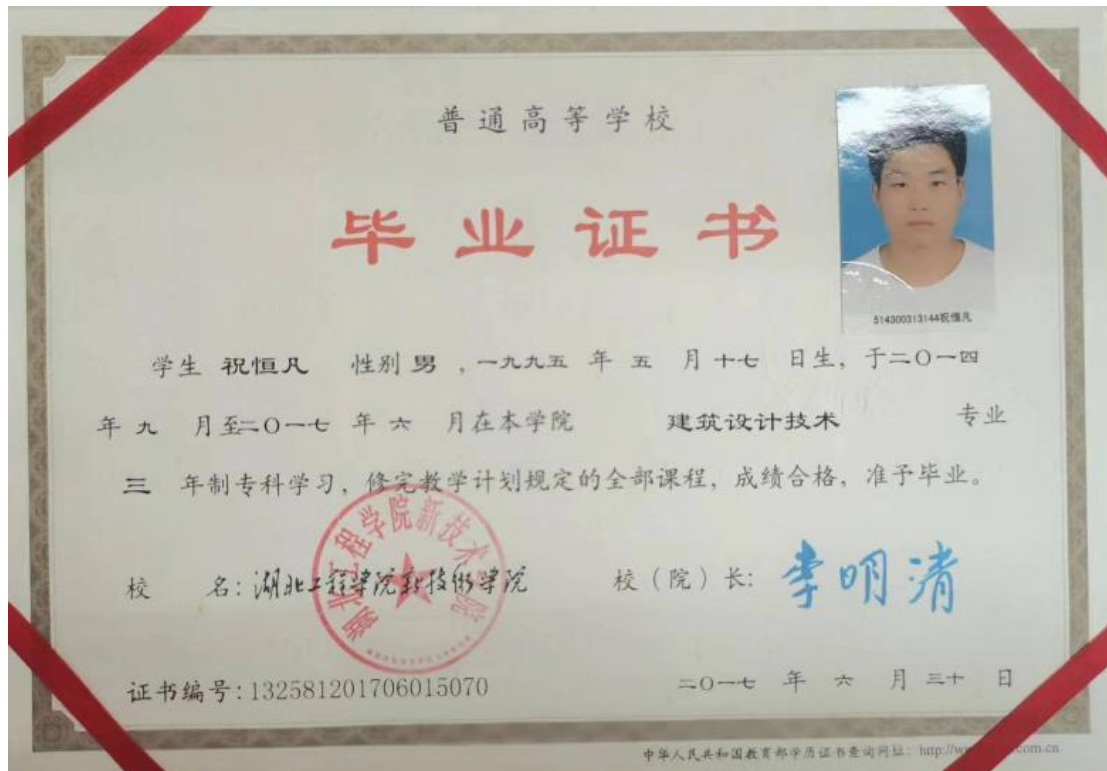 普通高等学校
毕业证书
514300313144祝恒凡
学生 祝恒凡 性别 男 ,一九九五 年 五 月 十七 日生, 于二〇一四
年 九 月至二〇一七 年 六 月在本学院 建筑设计技术 专业
三 年制专科学习, 修完教学计划规定的全部课程, 成绩合格, 准予毕业。
湖北工程学院新技术学院
校 名: 湖北工程学院新技術学院 校(院)长: 李明清
证书编号:132581201706015070 二〇一七 年 六 月 三十 日
中华人民共和国教育部学历证书查询网址: http://w com.cn